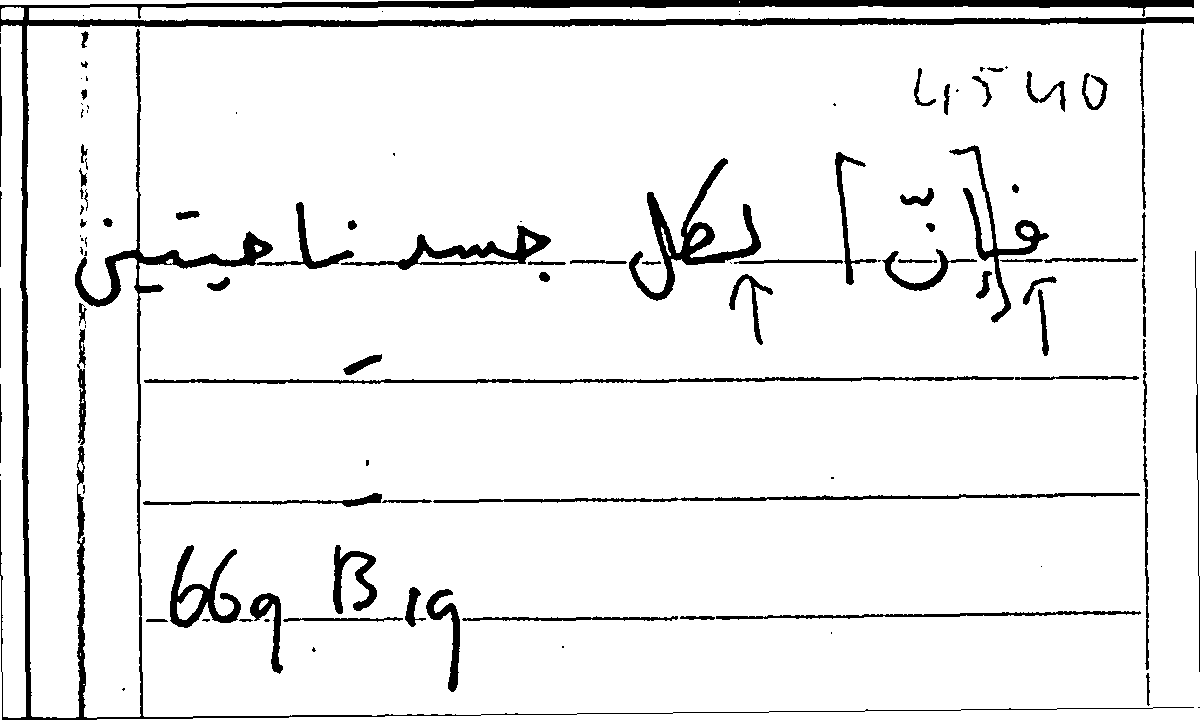 4540
فإ[نّ] لكل جسد ناحيتين
669 B 19